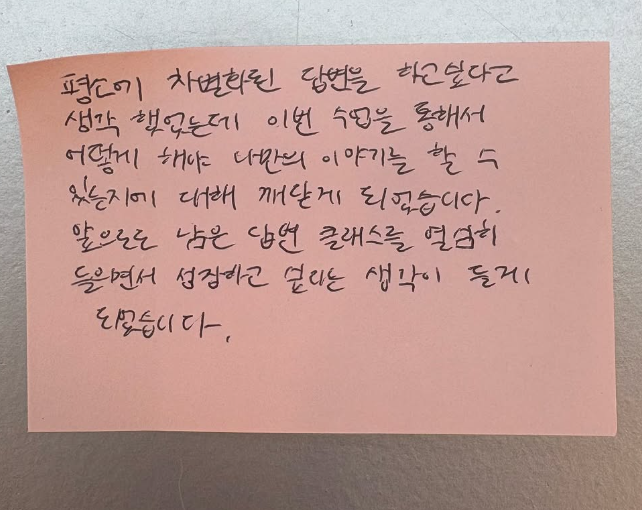 평소에 차별화된 답변을 하고싶다고
생각 했었는데 이번 수업을 통해서
어떻게 해야 나만의 이야기를 할 수
있는지에 대해 깨닫게 되었습니다.
앞으로도 남은 답변 클래스를 열심히
들으면서 성장하고 싶다는 생각이 들게
되었습니다.